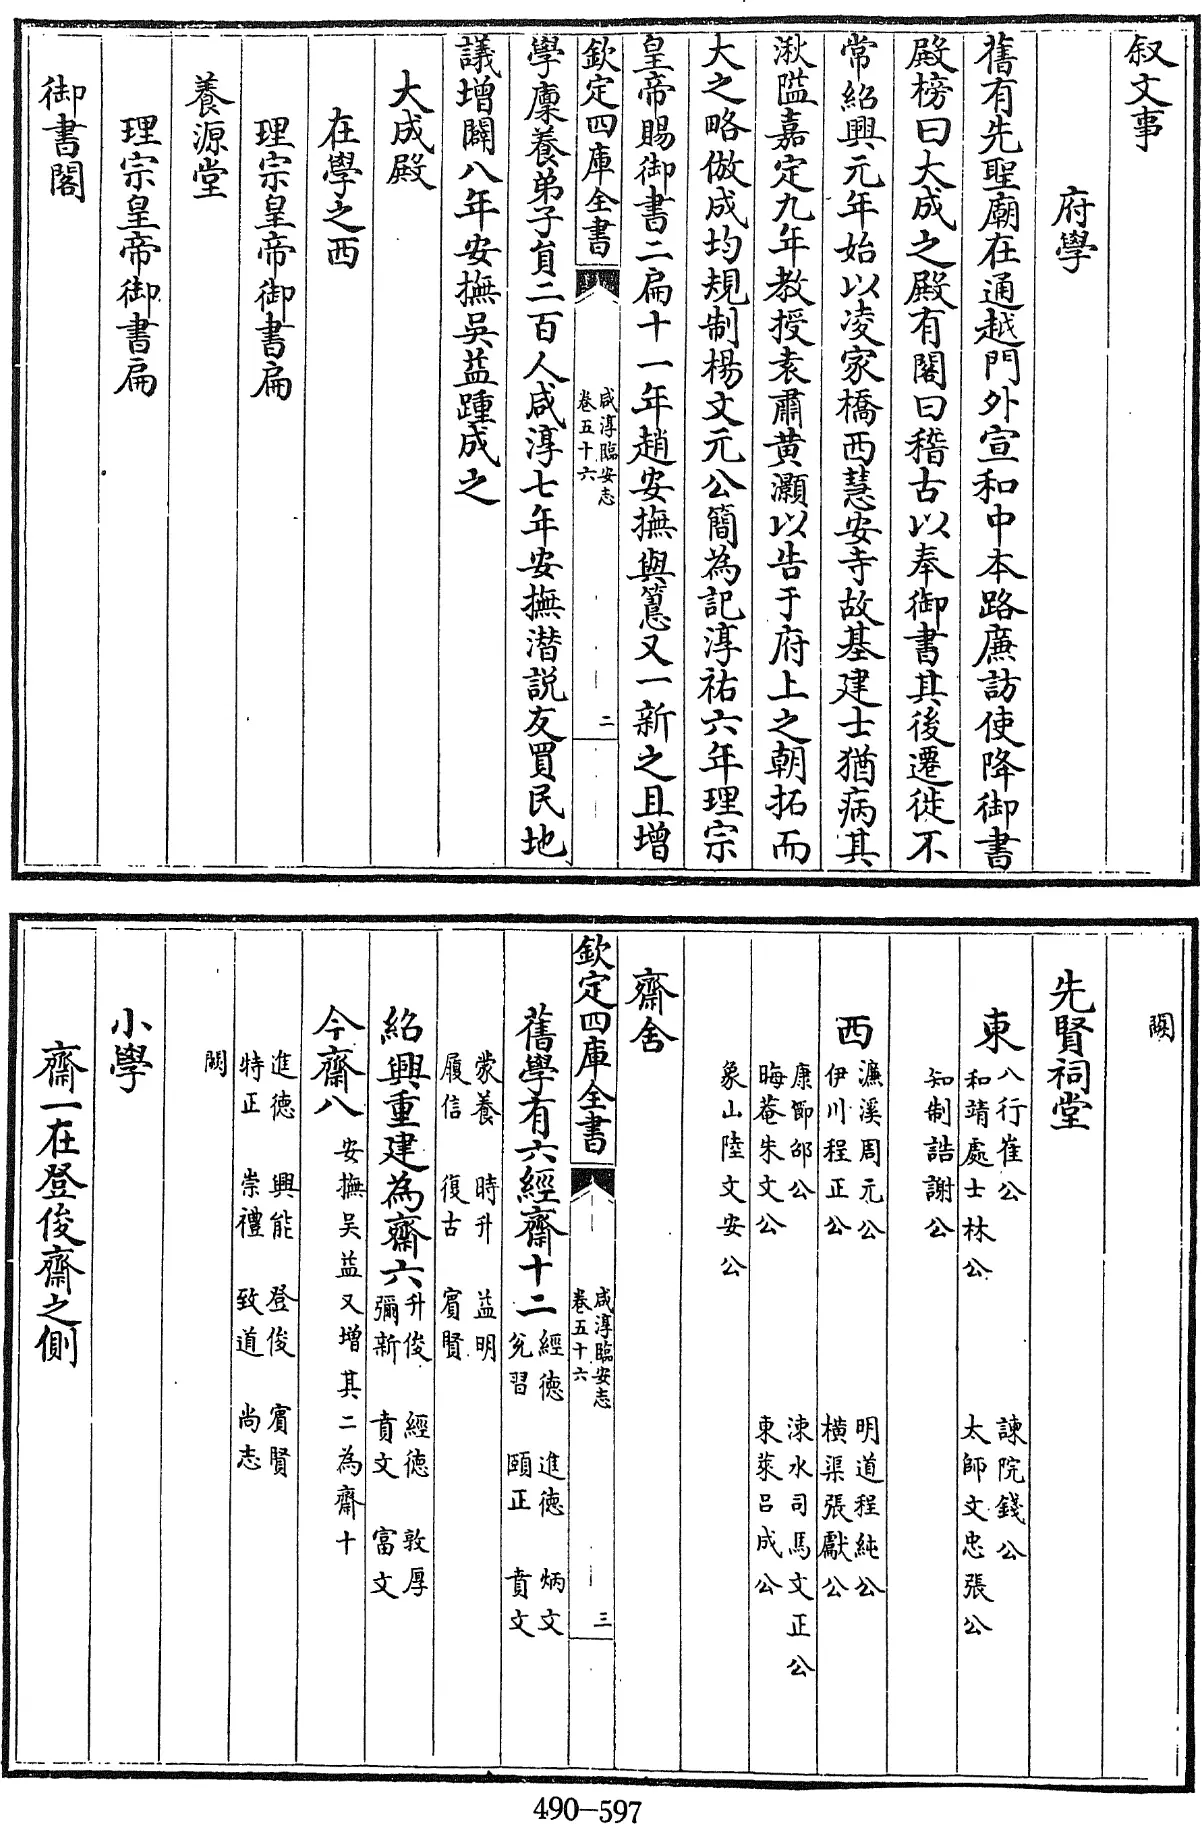 叙文事
府學
舊有先聖廟在通越門外宣和中本路廉訪使降御書
殿榜曰大成之殿有閣曰稽古以奉御書其後遷徙不
常紹興元年始以凌家橋西慧安寺故基建士猶病其
湫隘嘉定九年教授袁肅黄灝以告于府上之朝拓而
大之略倣成均規制楊文元公簡為記淳祐六年理宗
皇帝賜御書二扁十一年趙安撫與𥲅又一新之且增
欽定四庫全書
咸淳臨安志
卷五十六
二
學廩養弟子員二百人咸淳七年安撫潜説友買民地
議增闢八年安撫吳益踵成之
大成殿
在學之西
理宗皇帝御書扁
養源堂
理宗皇帝御書扁
御書閣
闕
先賢祠堂
東
八行崔公 諫院錢公
和靖處士林公 太師文忠張公
知制誥謝公
西
濂溪周元公 明道程純公
伊川程正公 橫渠張獻公
康節邵公 涑水司馬文正公
晦菴朱文公 東萊吕成公
象山陸文安公
齋舍
欽定四庫全書
咸淳臨安志
卷五十六
三
舊學有六經齋十二
經德 進德 炳文
兊習 頤正 賁文
蒙養 時升 益明
履信 復古 賓賢
紹興重建為齋六
升俊 經德 敦厚
彌新 賁文 富文
今齋八
安撫吳益又增其二為齋十
進德 興能 登俊 賓賢
特正 崇禮 致道 尚志
闕
小學
齋一在登俊齋之側
490-597